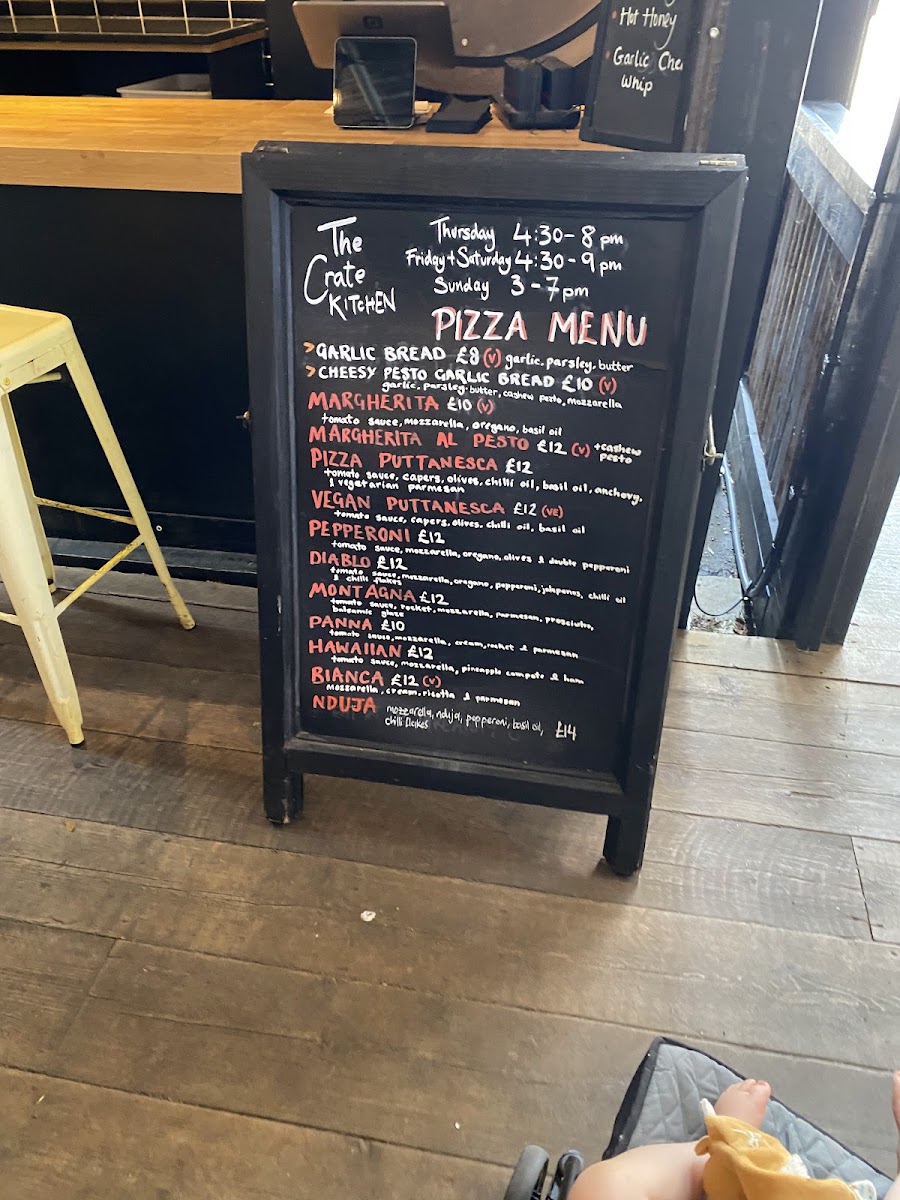 Hot Honey
Garlic Che
Whip
The
Crate
KITCHEN
Thursday 4:30-8pm
Friday+Saturday 4:30-9pm
Sunday 3-7pm
PIZZA MENU
> GARLIC BREAD £8 (V) garlic. parsley. butter
> CHEESY PESTO GARLIC BREAD £10 (V)
garlic, parsley-butter, cashew pesto, mozzarella
MARGHERITA £10 (V)
tomato sauce, mozzarella, oregano, basil oil
MARGHERITA AL PESTO £12 (V) +cashew
pesto
PIZZA PUTTANESCA £12
tomato sauce, capers, olives, chilli oil, basil oil, anchovy,
& vegetarian parmesan
VEGAN PUTTANESCA £12 (VE)
tomato sauce, capers, olives, chilli oil, basil oil
PEPPERONI £12
tomato sauce, mozzarella, oregano, olives & double pepperoni
DIABLO £12
tomato sauce, mozzarella, oregano, pepperoni, jalepenos, chilli oil
& chilli flakes
MONTAGNA £12
tomato sauce, rocket, mozzarella, parmesan, prosciuto,
balsamic glaze
PANNA £10
tomato sauce, mozzarella, cream, rocket & parmesan
HAWAIIAN £12
tomato sauce, mozzarella, pineapple compote & ham
BIANCA £12 (V)
mozzarella, cream, ricotta & parmesan
NDUJA mozzarella, nduja, pepperoni, basil oil,
chilli flakes £14